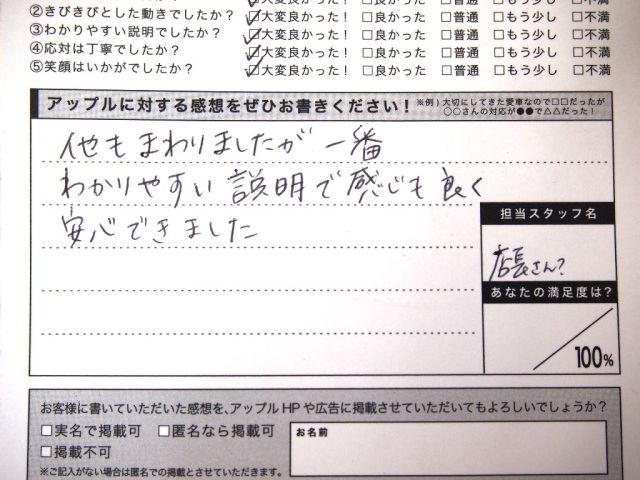 ②きびきびとした動きでしたか？ ☑大変良かった！ □良かった □普通 □もう少し □不満
③わかりやすい説明でしたか？ ☑大変良かった！ □良かった □普通 □もう少し □不満
④応対は丁寧でしたか？ ☑大変良かった！ □良かった □普通 □もう少し □不満
⑤笑顔はいかがでしたか？ ☑大変良かった！ □良かった □普通 □もう少し □不満
アップルに対する感想をぜひお書きください！
※例）大切にしてきた愛車なので□□だったが
○○さんの対応が●●で△△だった！
他もまわりましたが 一番
わかりやすい 説明で感じも良く
安心できました
担当スタッフ名
店長さん？
あなたの満足度は？
100%
お客様に書いていただいた感想を、アップルHPや広告に掲載させていただいてもよろしいでしょうか？
□実名で掲載可 □匿名なら掲載可
□掲載不可
※ご記入がない場合は匿名での掲載とさせていただきます。
お名前